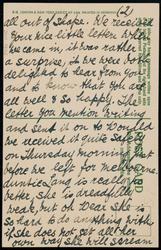 (2)
all out of shape. We received
your nice little letter when
we came in, it was rather
a surprise, it we were both
delighted to hear from you
and to know that you are
all well & so happy. The
letter you mention writing
and sent it on to
we received it quite safe
on Thursday morning just
before we left for melbourne
auntie is really
better, she is dreadfully
weak but Dear she is
so hard to do anything with
if she does not get all her
own way she will scream
POST CARD